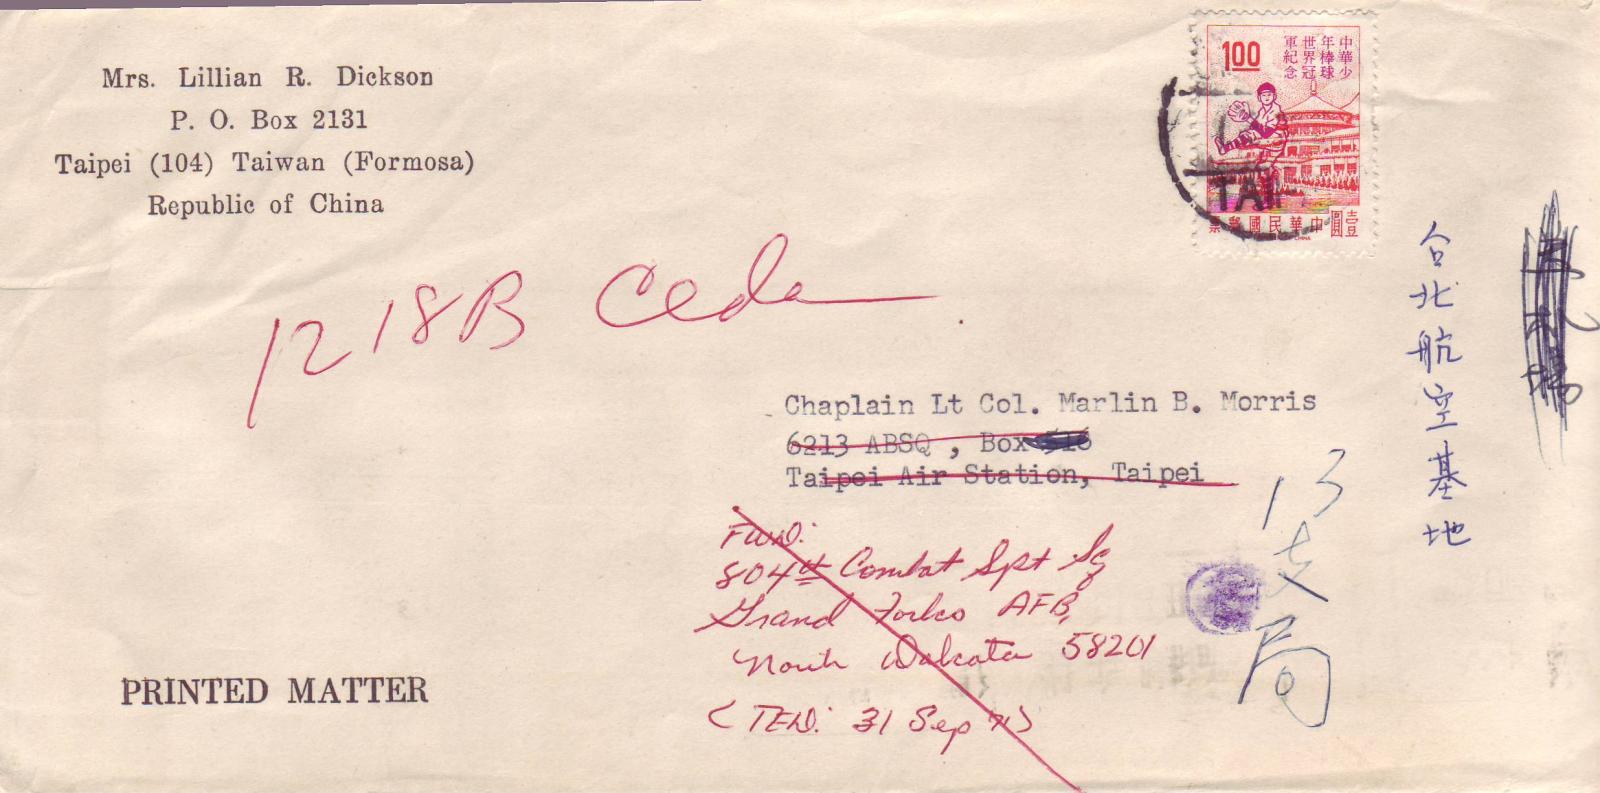 Mrs. Lillian R. Dickson
P. O. Box 2131
Taipei (104) Taiwan (Formosa)
Republic of China
1.00
中華少
年棒球
世界冠
軍紀念
TAI
票郵國民華中
壹圓
1218B Ceda
台北航空基地
Chaplain Lt Col. Marlin B. Morris
6213 ABSQ, Box
Taipei Air Station, Taipei
13支局
FWD:
804th Combat Spt Sq
Grand Forks AFB,
North Dakota 58201
(TED: 31 Sep 71)
PRINTED MATTER